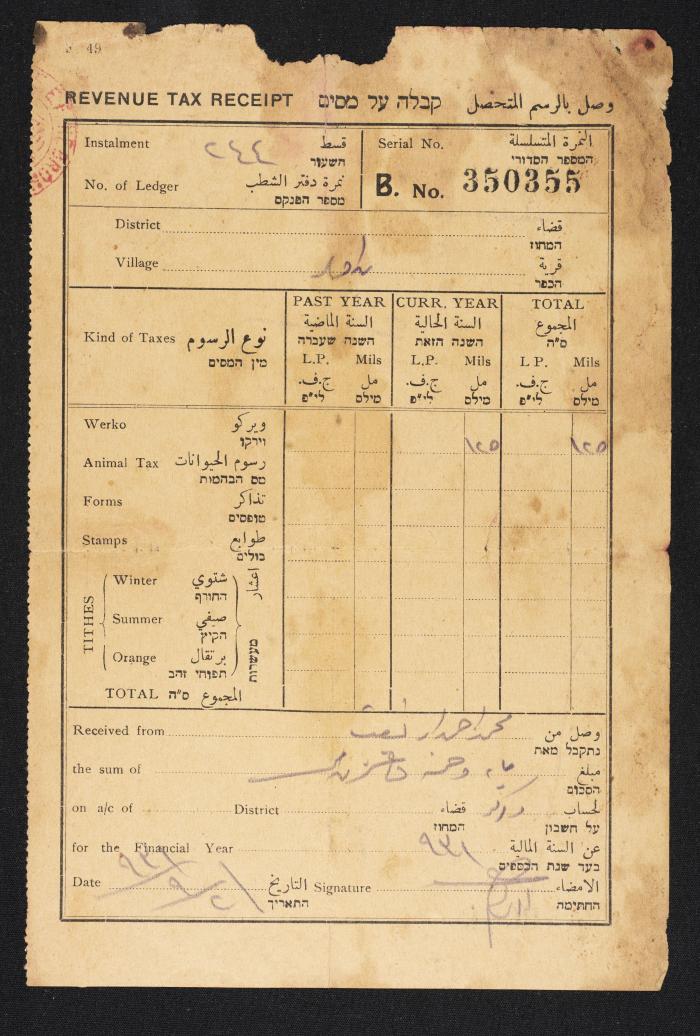 49
REVENUE TAX RECEIPT קבלה על מסים وصل بالرسم المتحصل
Instalment ٢٤٤ קסט
השעור
Serial No. النمرة المتسلسلة
המספר הסדורי
No. of Ledger نمرة دفتر الشطب
מספר הפנקס
B. No. 350355
District قضاء
המחוז
Village قرية
הכפר
PAST YEAR CURR. YEAR TOTAL
السنة الماضية السنة الحالية المجموع
Kind of Taxes نوع الرسوم השנה שעברה השנה הזאת ס"ה
מין המסים
L.P. Mils L.P. Mils L P. Mils
ج.ف. مل ج.ف. مل ج.ف. مل
לי"פ מילס לי"פ מילס לי"פ מילס
Werko ويركو
וירקו ١٢٥ ١٢٥
Animal Tax رسوم الحيوانات
מס הבהמות
Forms تذاكر
טופסים
Stamps طوابع
בולים
TITHES اعشار מעשרות
Winter شتوي
החורף
Summer صيفي
הקיץ
Orange برتقال
תפוחי זהב
TOTAL ס"ה المجموع
Received from محمد احمد وصل من
נתקבל מאת
the sum of مبلغ
הסכום
on a/c of District قضاء ويركو لحساب
המחוז על חשבון
for the Financial Year ٩٣١ عن السنة المالية
בעד שנת הכספים
Date التاريخ Signature الامضاء
התאריך החתימה